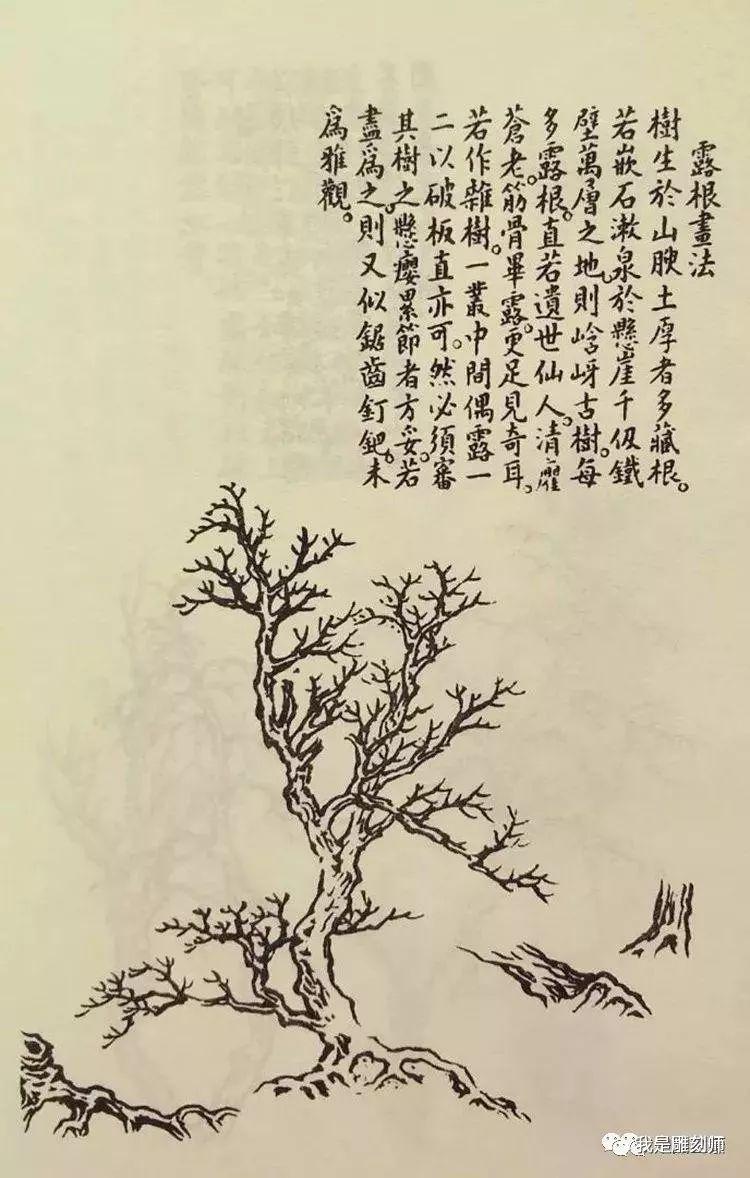 露根畫法
樹生於山腴土厚者多藏根。
若嵌石漱泉於懸崖千仭鐵
壁萬層之地。則崯岈古樹。每
多露根。直若遺世仙人。清癯
蒼老。筋骨畢露。更足見奇耳。
若作雜樹。一叢中間偶露一
二以破板直亦可。然必須審
其樹之懸癭累節者方妥。若
盡爲之。則又似鋸齒釘鈀。未
爲雅觀。
我是雕刻师